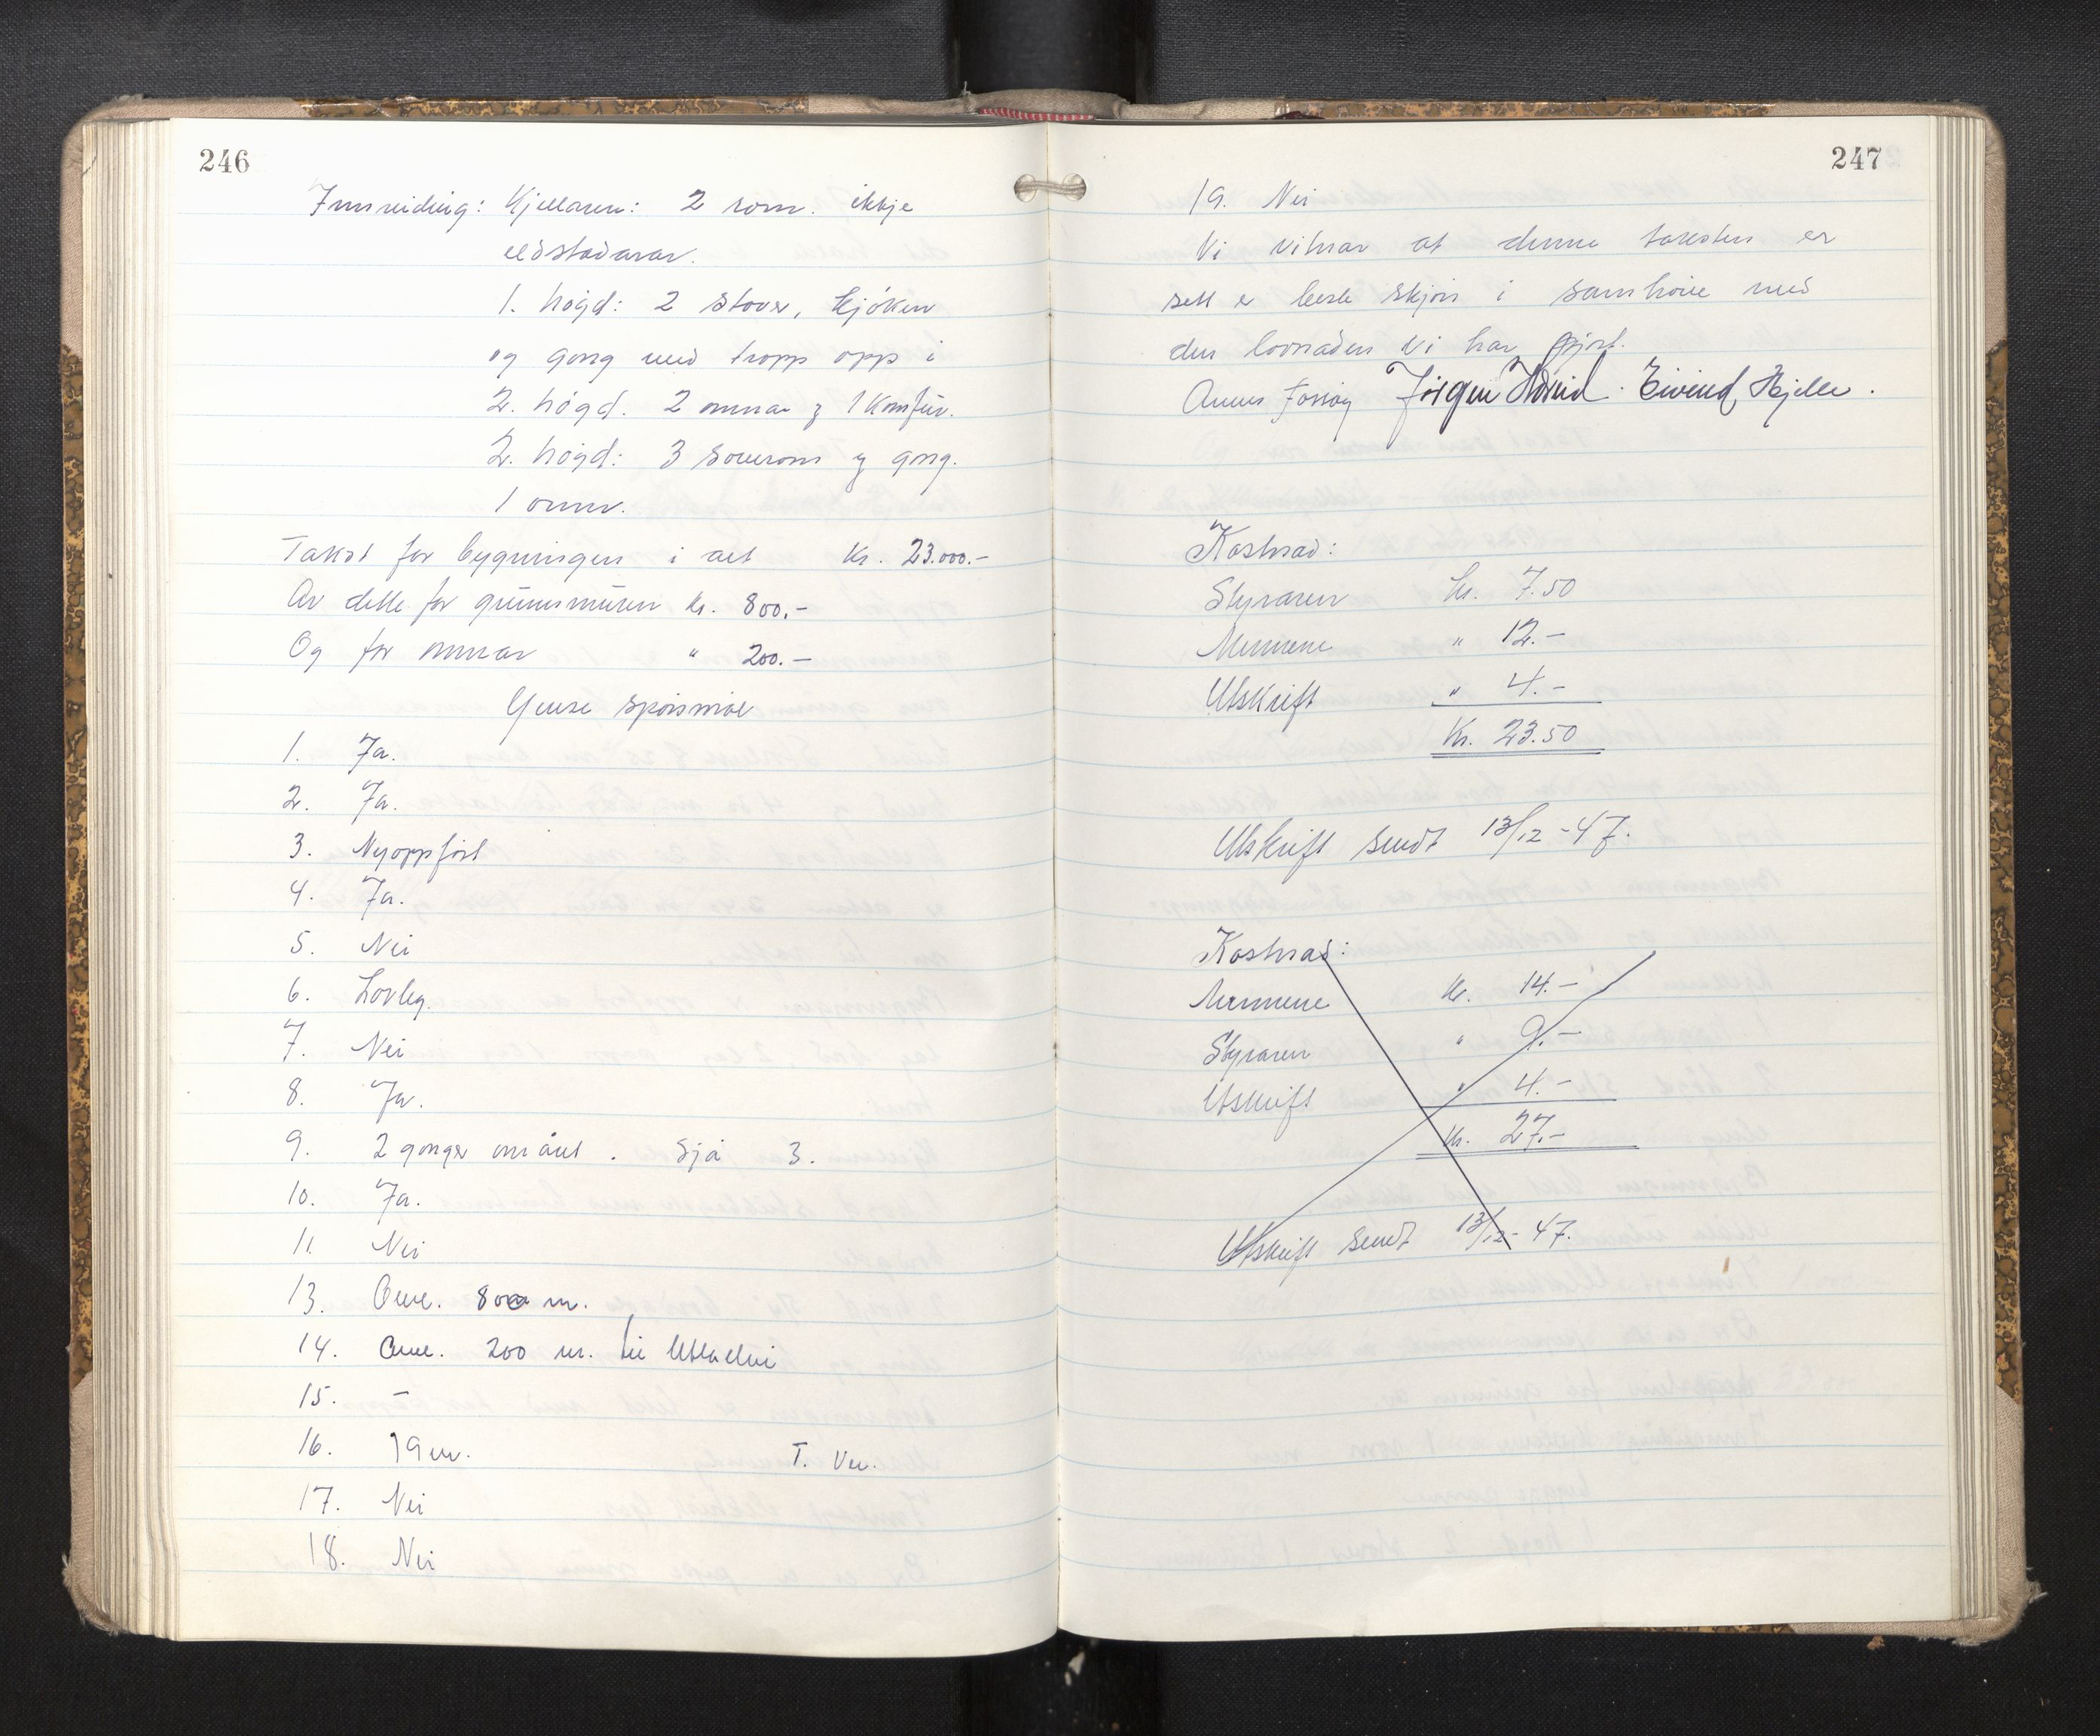 246
Innreiding: Kjellaren: 2 rom. ikkje
eldstadarar.
1. högd: 2 stover, kjöken
og gong med tropp opp i
2. högd. 2 omnar og 1 komfur.
2. högd: 3 soverom og gong.
1 omn.
Takst for bygningen i alt Kr. 23.000.-
Av dette for grunnmuren Kr. 800.-
Og for omnar " 200.-
Ymse spörsmål
1. Ja.
2. Ja.
3. Nyoppfört
4. Ja.
5. Nei
6. Lovleg.
7. Nei
8. Ja.
9. 2 gonger om året. Sjå 3.
10. Ja.
11. Nei
13. Oml. 800 m.
14. Oml. 200 m. til Utladelvi
15. -
16. 19 m. T. Ver.
17. Nei
18. Nei
247
19. Nei
Vi vitnar at denne taksten er
sett e beste skjön i samhöve med
den lovnaden vi har gjort.
Jörgen Eivind Hjelle.
Kostnad:
Styraren kr. 7.50
Mennene " 12.-
Utskrift " 4.-
Kr. 23.50
Utskrift sendt 13/12 -47.
Kostnad:
Mennene kr. 14.-
Styraren " 9.-
Utskrift " 4.-
Kr. 27.-
Utskrift sendt 13/12- 47.